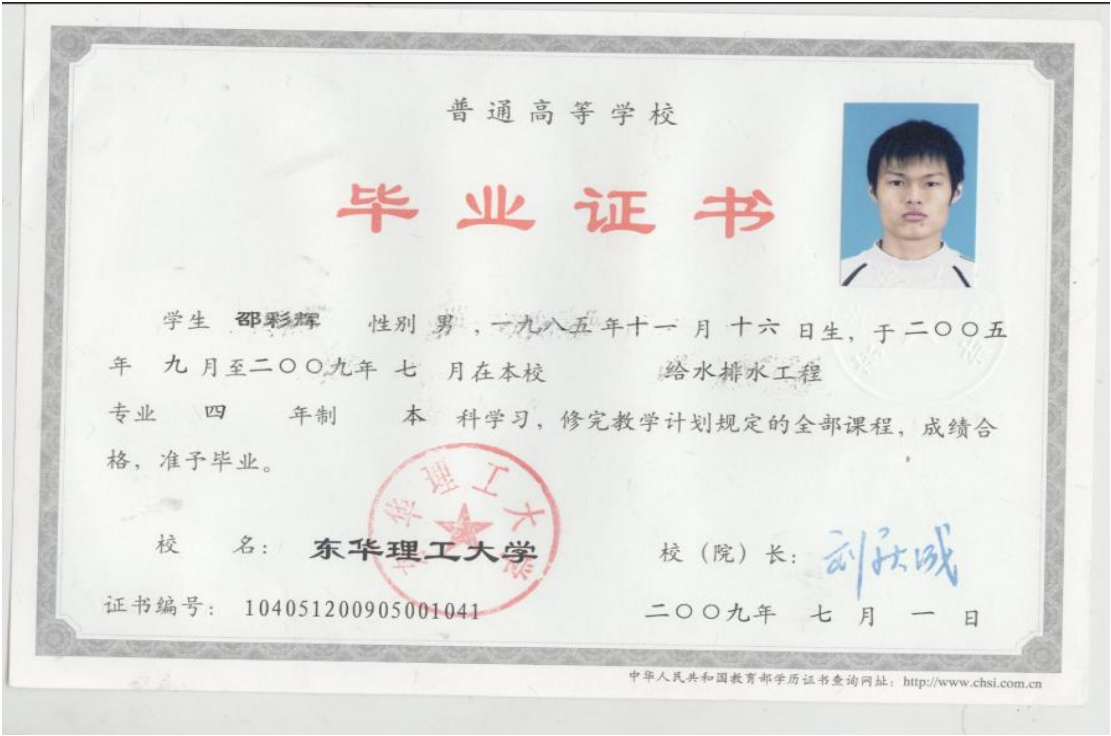 普通高等学校
毕业证书
学生 邵彩辉 性别 男，一九八五年十一月十六日生，于二〇〇五
年 九 月至二〇〇九年 七 月在本校 给水排水工程
专业 四 年制 本 科学习，修完教学计划规定的全部课程，成绩合
格，准予毕业。
东华理工大学
校 名： 东华理工大学 校（院）长：
证书编号： 104051200905001041 二〇〇九年 七 月 一 日
中华人民共和国教育部学历证书查询网址：http://www.chsi.com.cn